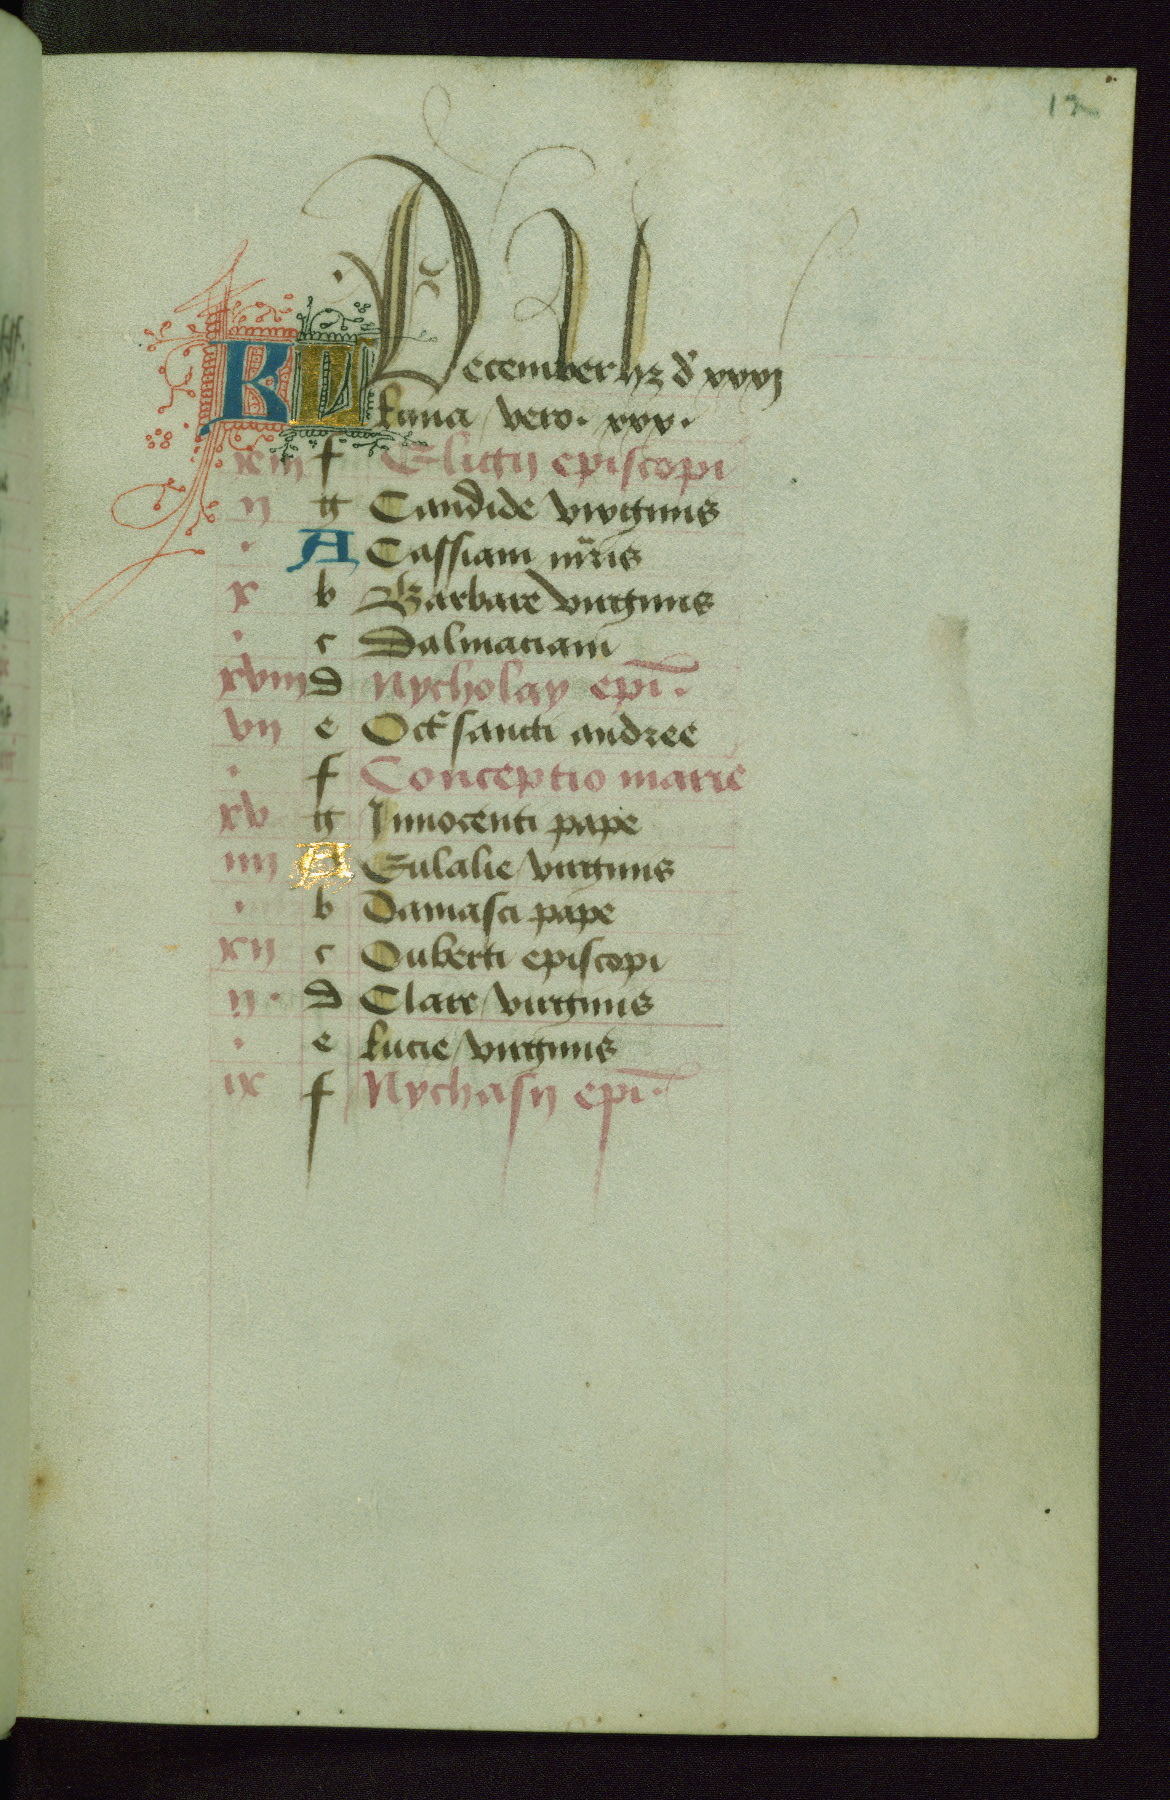 12
KL December hz d' xxxj
luna vero. xxx.
xiij f Eligij episcopi
ij g Candide virginis
. A Cassiani mr̄is
x b Barbare virginis
. c Dalmaciani
xviij d Nycholay epī.
vij e Oct' sancti andree
. f Conceptio marie
xv g Innocenti pape
iiij A Eulalie virginis
. b Damasci pape
xij c Ouberti episcopi
ij . d Clare virginis
. e lucie virginis
ix f Nychasij epī.